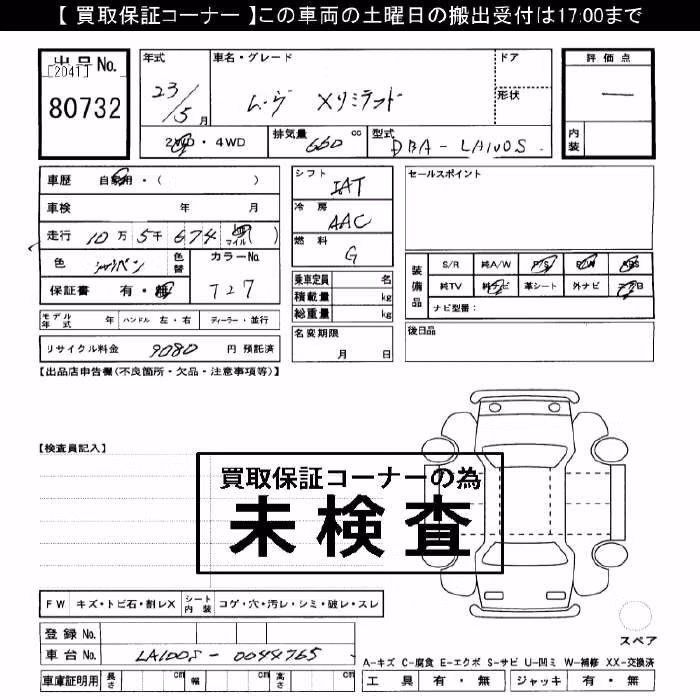 【 買取保証コーナー 】この車両の土曜日の搬出受付は17:00まで
出品No.
[2041]
80732
年式
23/5月
車名・グレード
ムーヴ Xリミテッド
ドア
形状
評価点
―
内装
2WD・4WD
排気量 660 cc
型式 DBA - LA100S
車歴 自家用・( )
車検 年 月
走行 10万 5千 674 マイル( )
色 シャンパン
色替
カラーNo. T27
保証書 有・無
モデル年式 年
ハンドル 左・右
ディーラー・並行
リサイクル料金 9080 円 預託済
シフト IAT
冷房 AAC
燃料 G
乗車定員 名
積載量 kg
総重量 kg
名変期限
月 日
セールスポイント
装備品
S/R 純A/W P/S P/W ABS
純TV 純ナビ 革シート 外ナビ エアB
ナビ型番:
後日品
【出品店申告欄(不良箇所・欠品・注意事項等)】
【検査員記入】
買取保証コーナーの為
未検査
FW キズ・トビ石・割レX
シート内装 コゲ・穴・汚レ・シミ・破レ・スレ
登録No.
車台No. LA100S-0044765
車庫証明用 長さ cm 幅 cm 高さ cm
スペア
A-キズ C-腐食 E-エクボ S-サビ U-凹ミ W-補修 XX-交換済
工具 有・無 ジャッキ 有・無